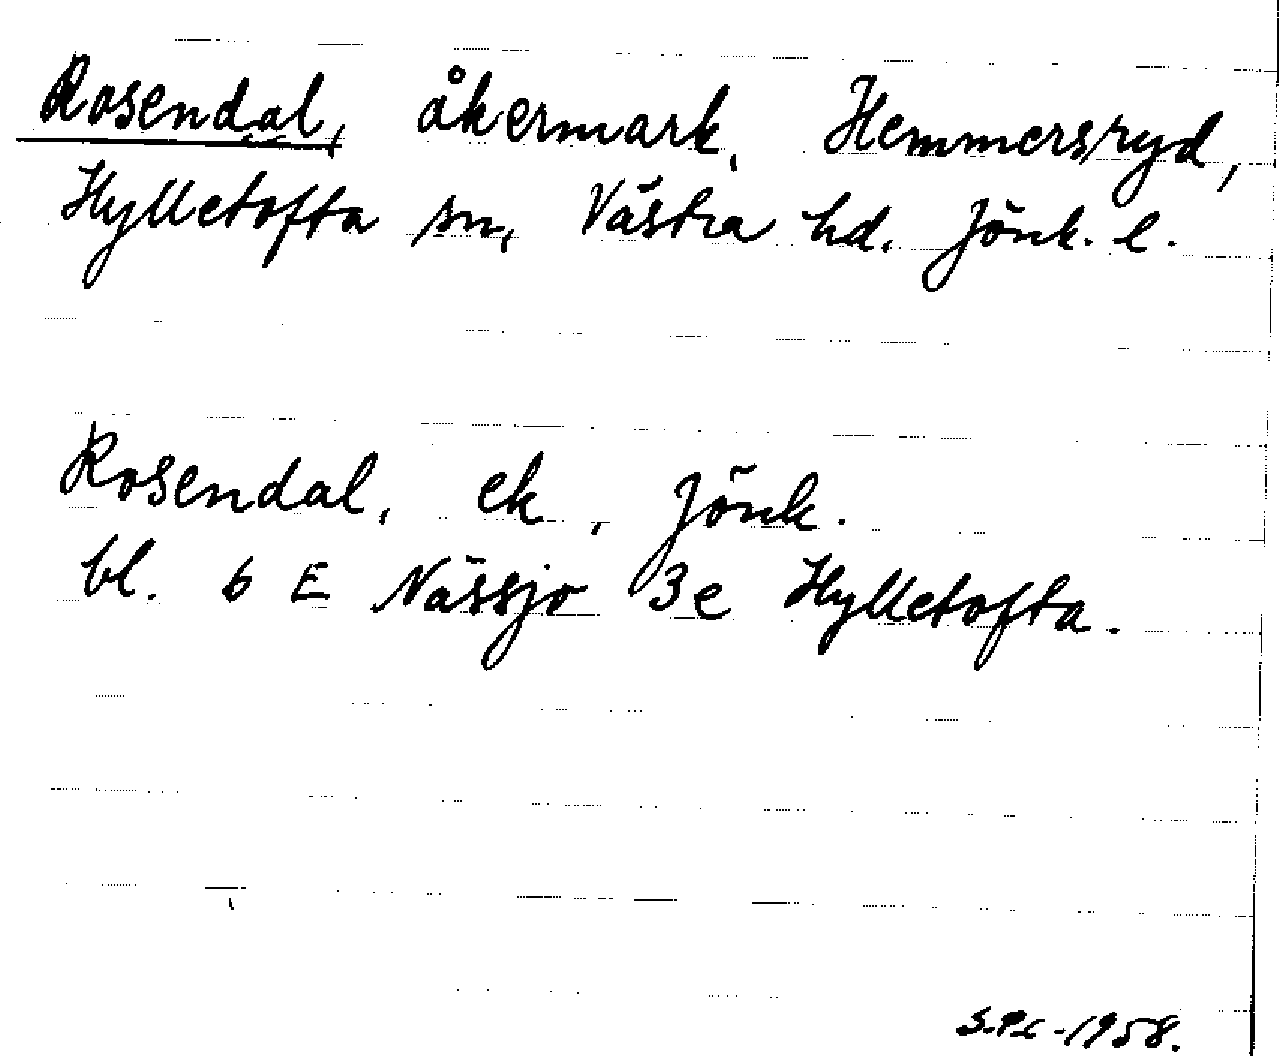 Rosendal, åkermark, Hemmersryd,
Hylletofta sn, Västra hd. Jönk. l.
Rosendal, ek, Jönk.
bl. 6 E Nässjö 3e Hylletofta.
1958.